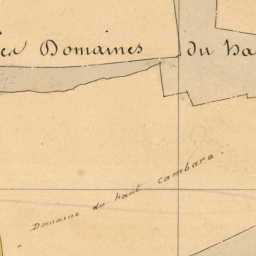 Domaines du ha
Domaine du haut Cambara.